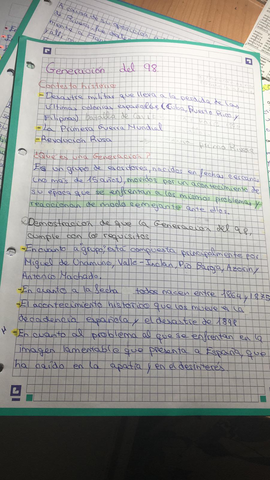 Generación del 98
Contexto histórico
- Desastre militar que lleva a la pérdida de las
últimas colonias españolas (Cuba, Puerto Rico y
Filipinas)
- La Primera Guerra Mundial
- Revolución Rusa
¿Qué es una generación?
Es un grupo de escritores, nacidos en fechas cercanas
(no más de 15 años), movidos por un acontecimiento de
su época que se enfrentan a los mismos problemas y
reaccionan de modo semejante ante ellos.
Demostración de que la Generación del 98,
cumple con los requisitos
- En cuanto a grupo: está compuesta principalmente por
Miguel de Unamuno, Valle-Inclán, Pío Baroja, Azorín y
Antonio Machado.
- En cuanto a la fecha todos nacen entre 1864 y 1875
- El acontecimiento histórico que los mueve es la
decadencia española y el desastre de 1898
- En cuanto al problema al que se enfrentan es la
imagen lamentable que presenta a España, que
ha caído en la apatía y en el desinterés